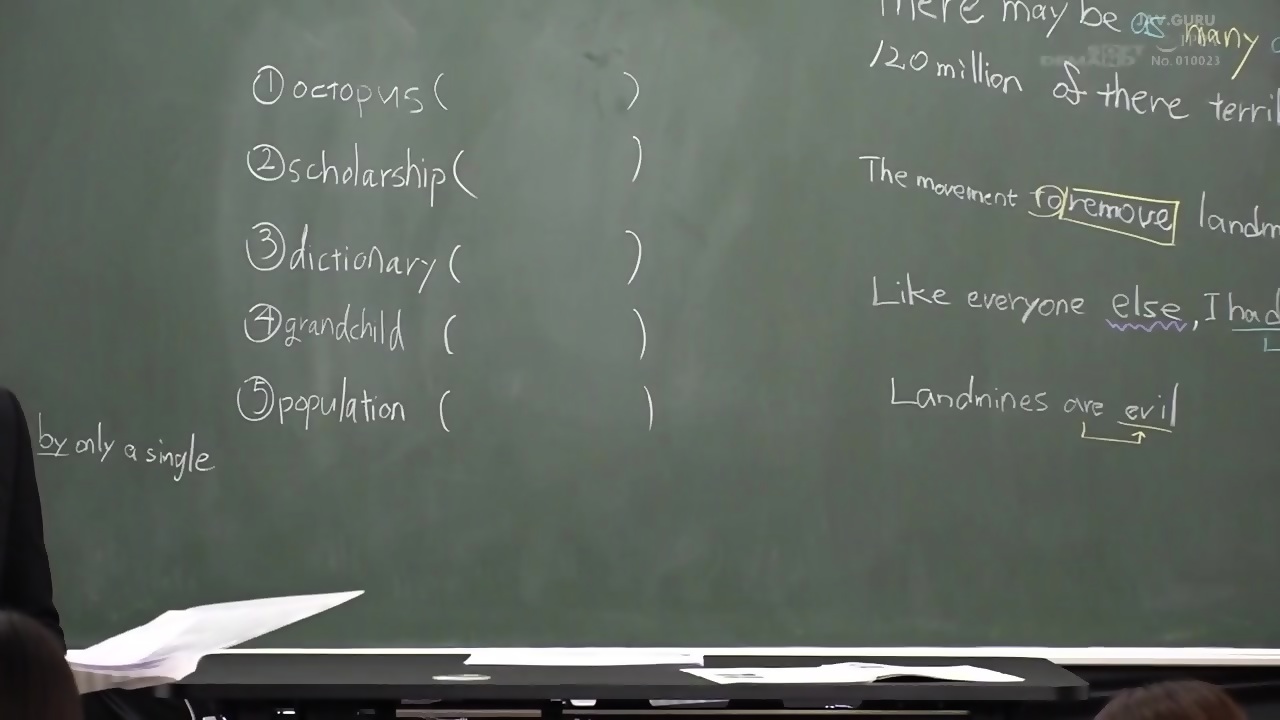 ① octopus ( )
② scholarship ( )
③ dictionary ( )
④ grandchild ( )
⑤ population ( )
by only a single
There may be as many
120 million of there
The movement to remove
Like everyone else, I had
Landmines are evil
JAV.GURU
No. 010023